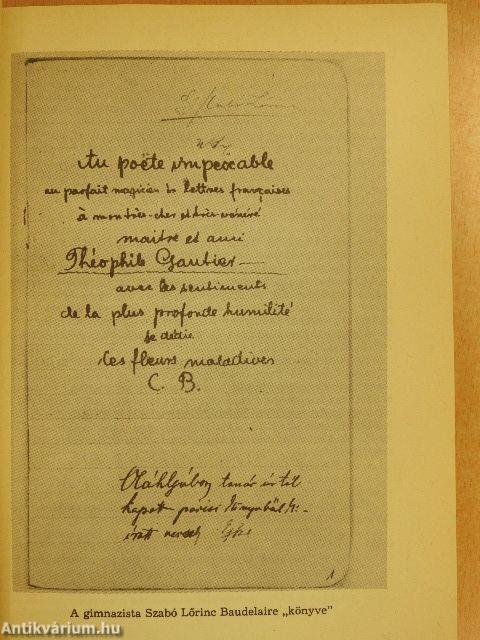 Szabó Lőrinc
Au poëte impeccable
au parfait magicien ès lettres françaises
à mon très-cher et très-vénéré
maitre et ami
Théophile Gautier
avec les sentiments
de la plus profonde humilité
je dédie
ces fleurs maladives
C. B.
tanár úrtól
kapott párisi könyvből ki-
írott versek
1
A gimnazista Szabó Lőrinc Baudelaire „könyve”
Antikvárium.hu